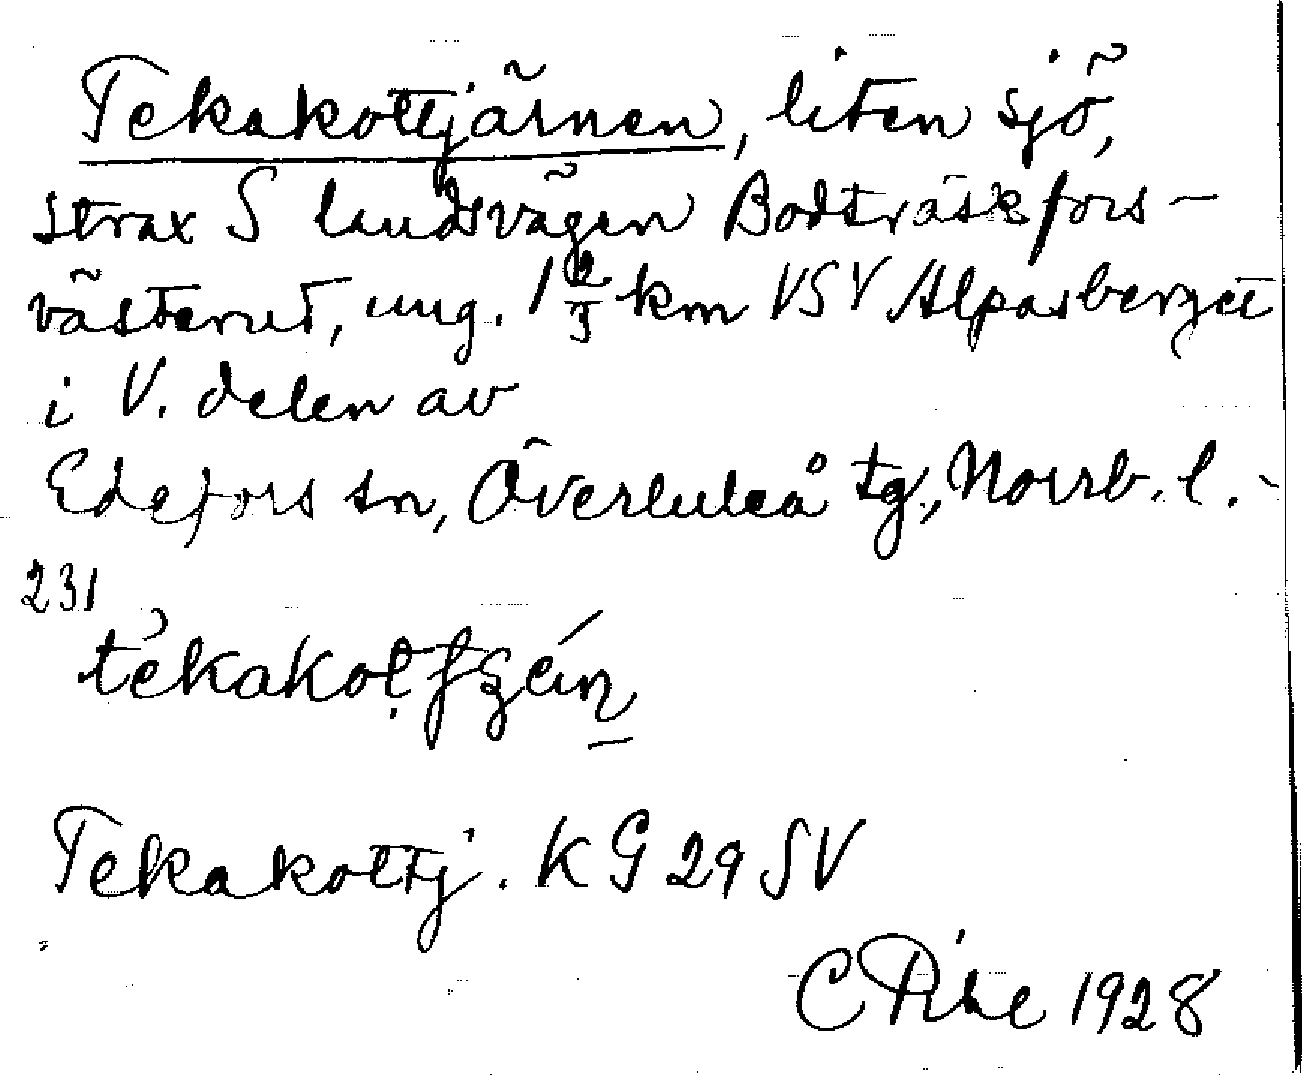 Tekakottjärnen, liten sjö,
strax S landsvägen Bodträskfors-
västerut, ung. 1 2/3 km VSV Alpasberget
i V. delen av
Edefors sn, Överluleå tg, Norrb. l.
231
Tekakottj. KG 29 SV
C 1928